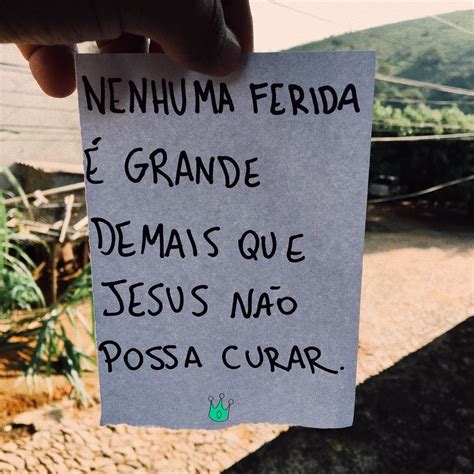 NENHUMA FERIDA
É GRANDE
DEMAIS QUE
JESUS NÃO
POSSA CURAR.